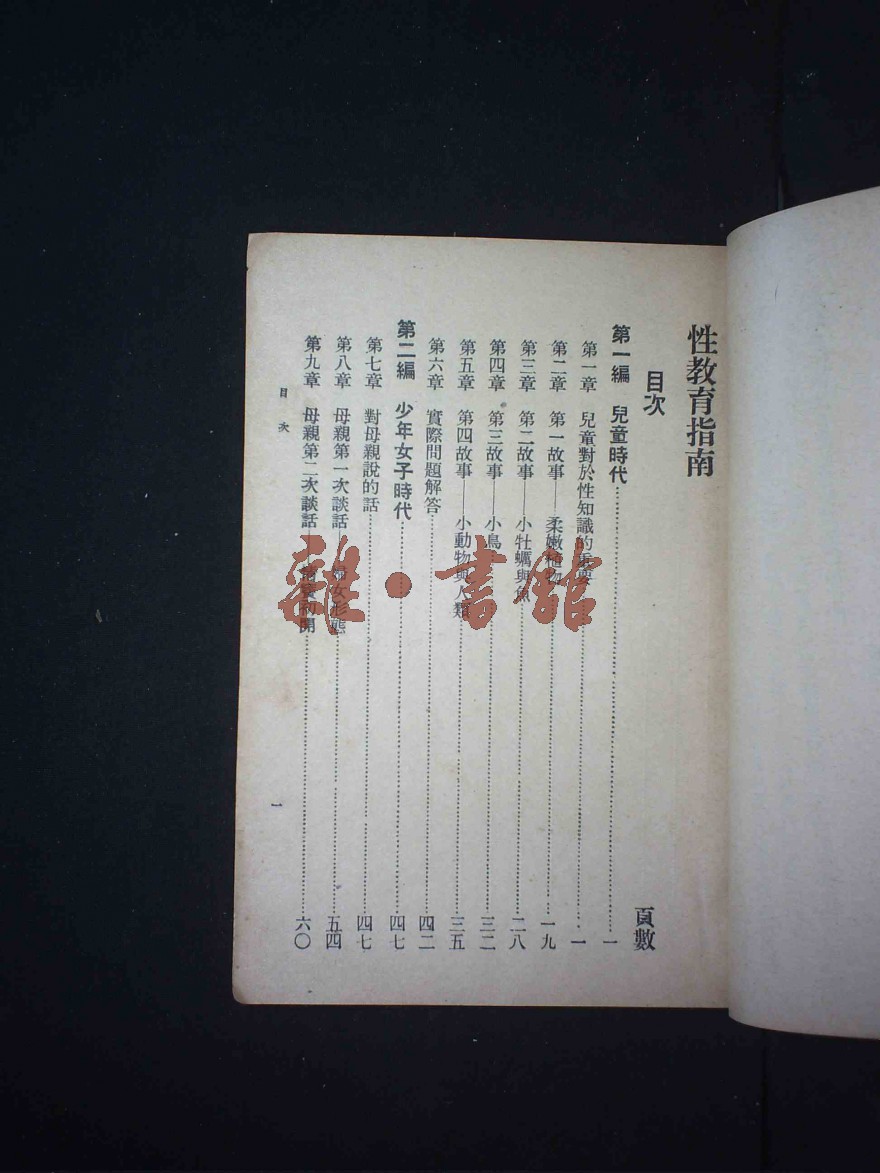 性教育指南
目次 頁數
第一編 兒童時代……一
第一章 兒童對於性知識的重要……一
第二章 第一故事——柔嫩植物……一九
第三章 第二故事——小牡蠣與魚……二八
第四章 第三故事——小鳥……三二
第五章 第四故事——小動物與人類……三五
第六章 實際問題解答……四二
第二編 少年女子時代……四七
第七章 對母親說的話……四七
第八章 母親第一次談話——婦女形態……五四
第九章 母親第二次談話——初開……六〇
目次
一
雜·書館